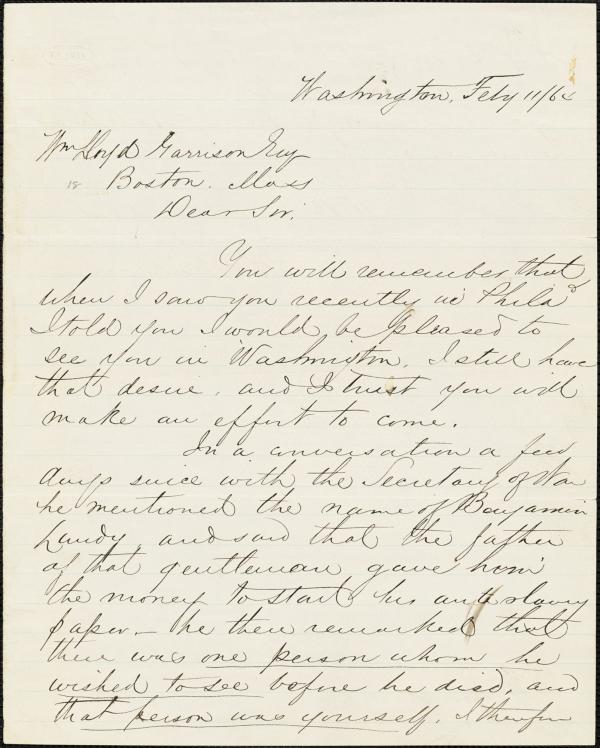 Washington, Feby 11/64
Wm Lloyd Garrison Esq
18
Boston. Mass
Dear Sir,
You will remember that
when I saw you recently in Philad
I told you I would be pleased to
see you in Washington. I still have
that desire, and I trust you will
make an effort to come.
In a conversation a few
days since with the Secretary of War
he mentioned the name of Benjamin
Lundy, and said that the father
of that gentleman gave him
the money to start his anti slavery
paper. — he then remarked that
there was one person whom he
wished to see before he died, and
that person was yourself. I therefore